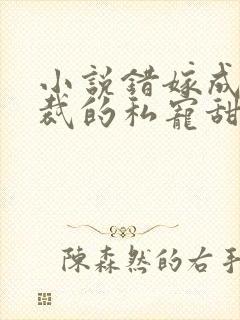 小説錯嫁成
裁的私寵甜
陳森然的右手